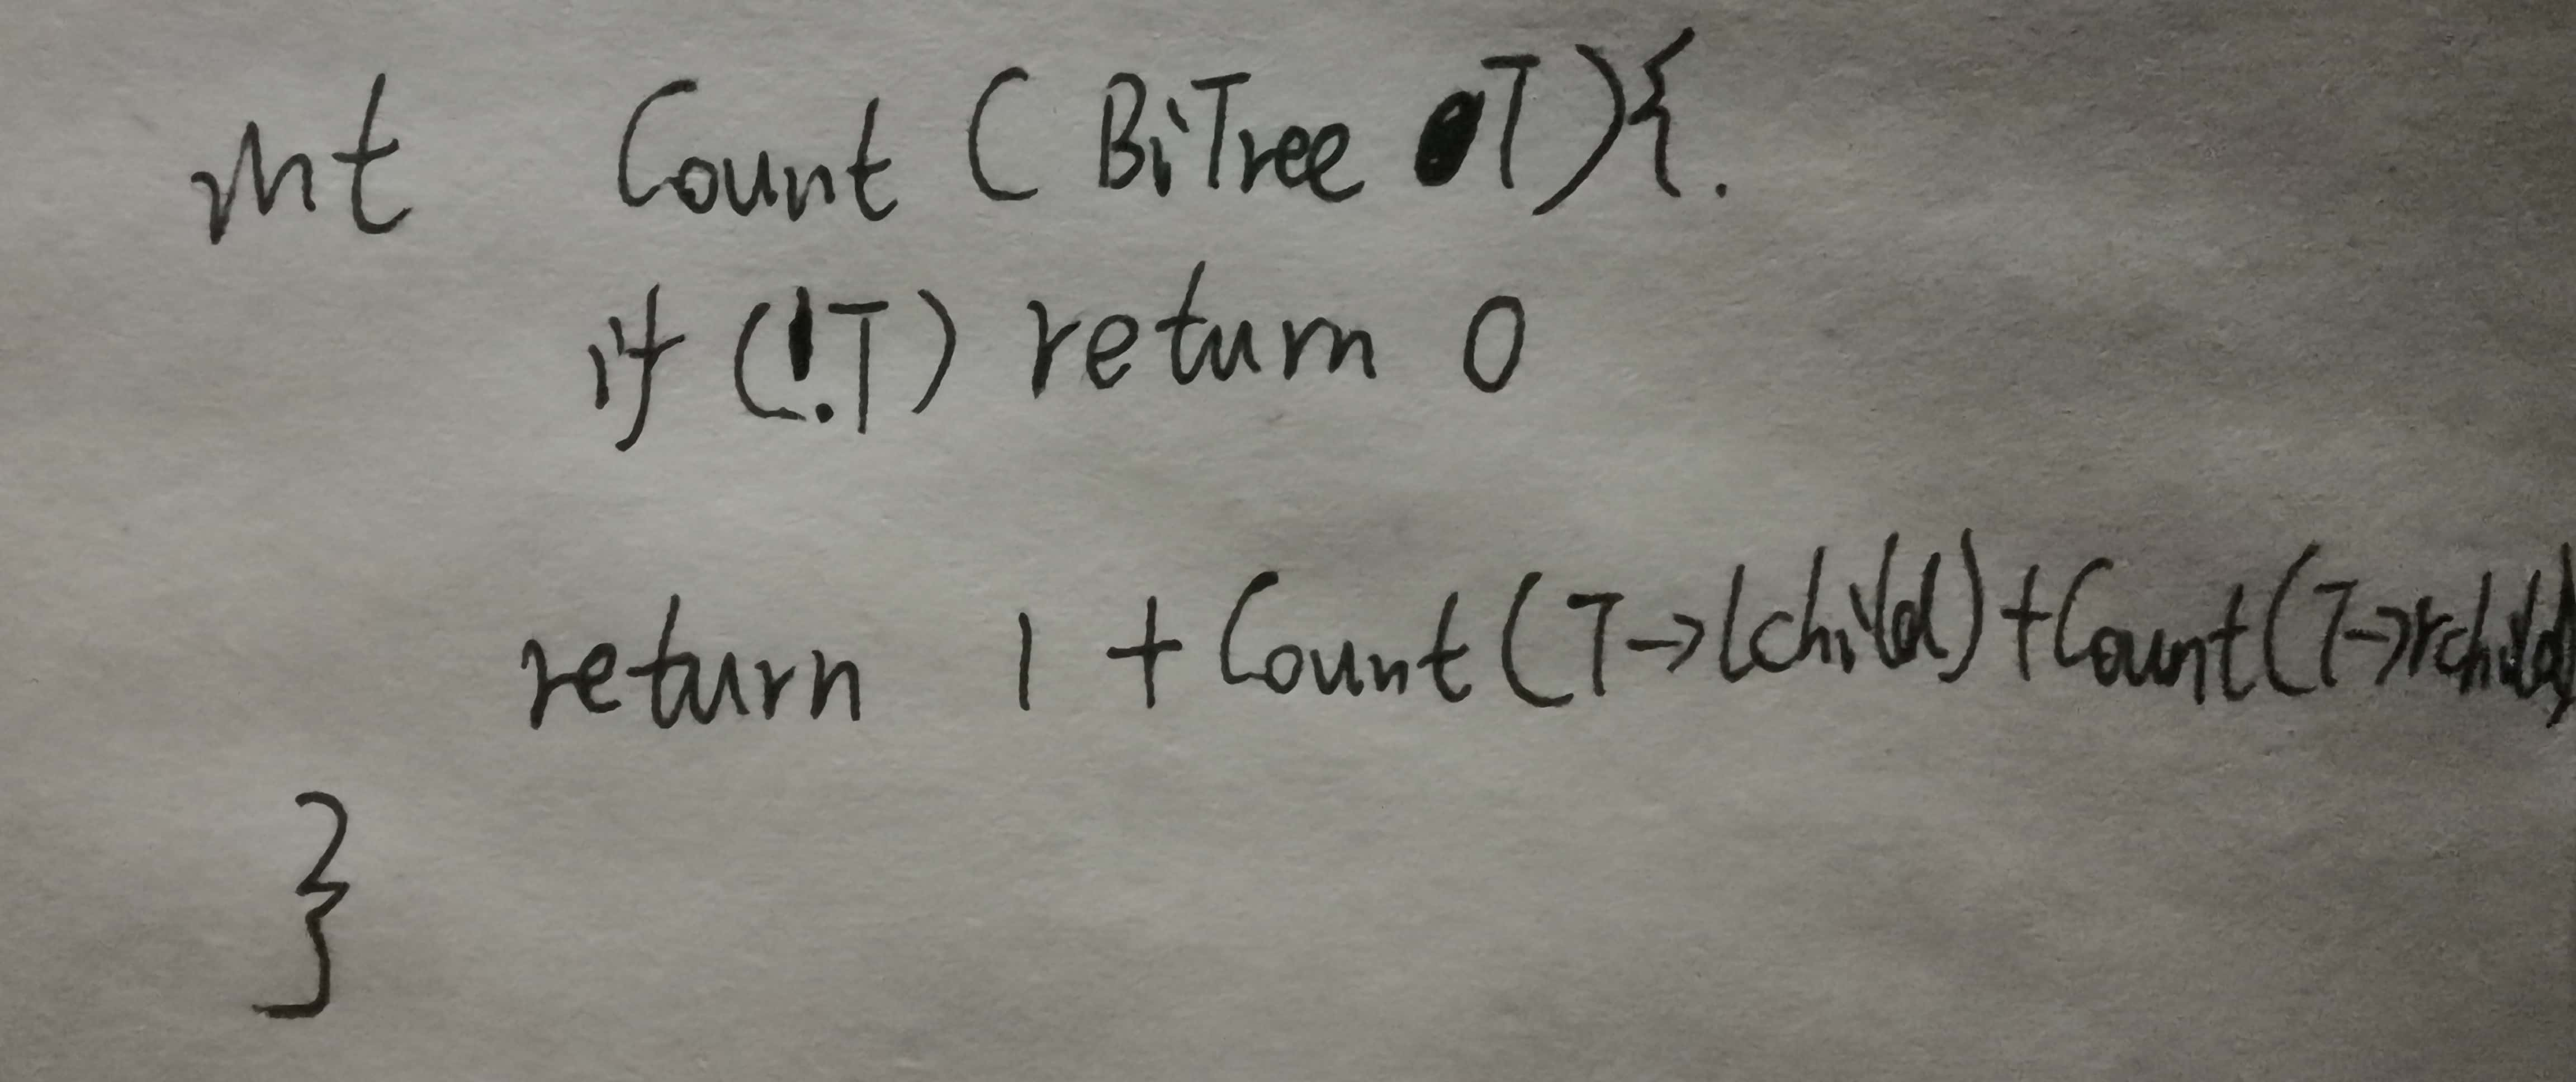 int Count (BiTree T){.
if (!T) return 0
return 1 + Count(T->lchild)+Count(T->rchild)
}